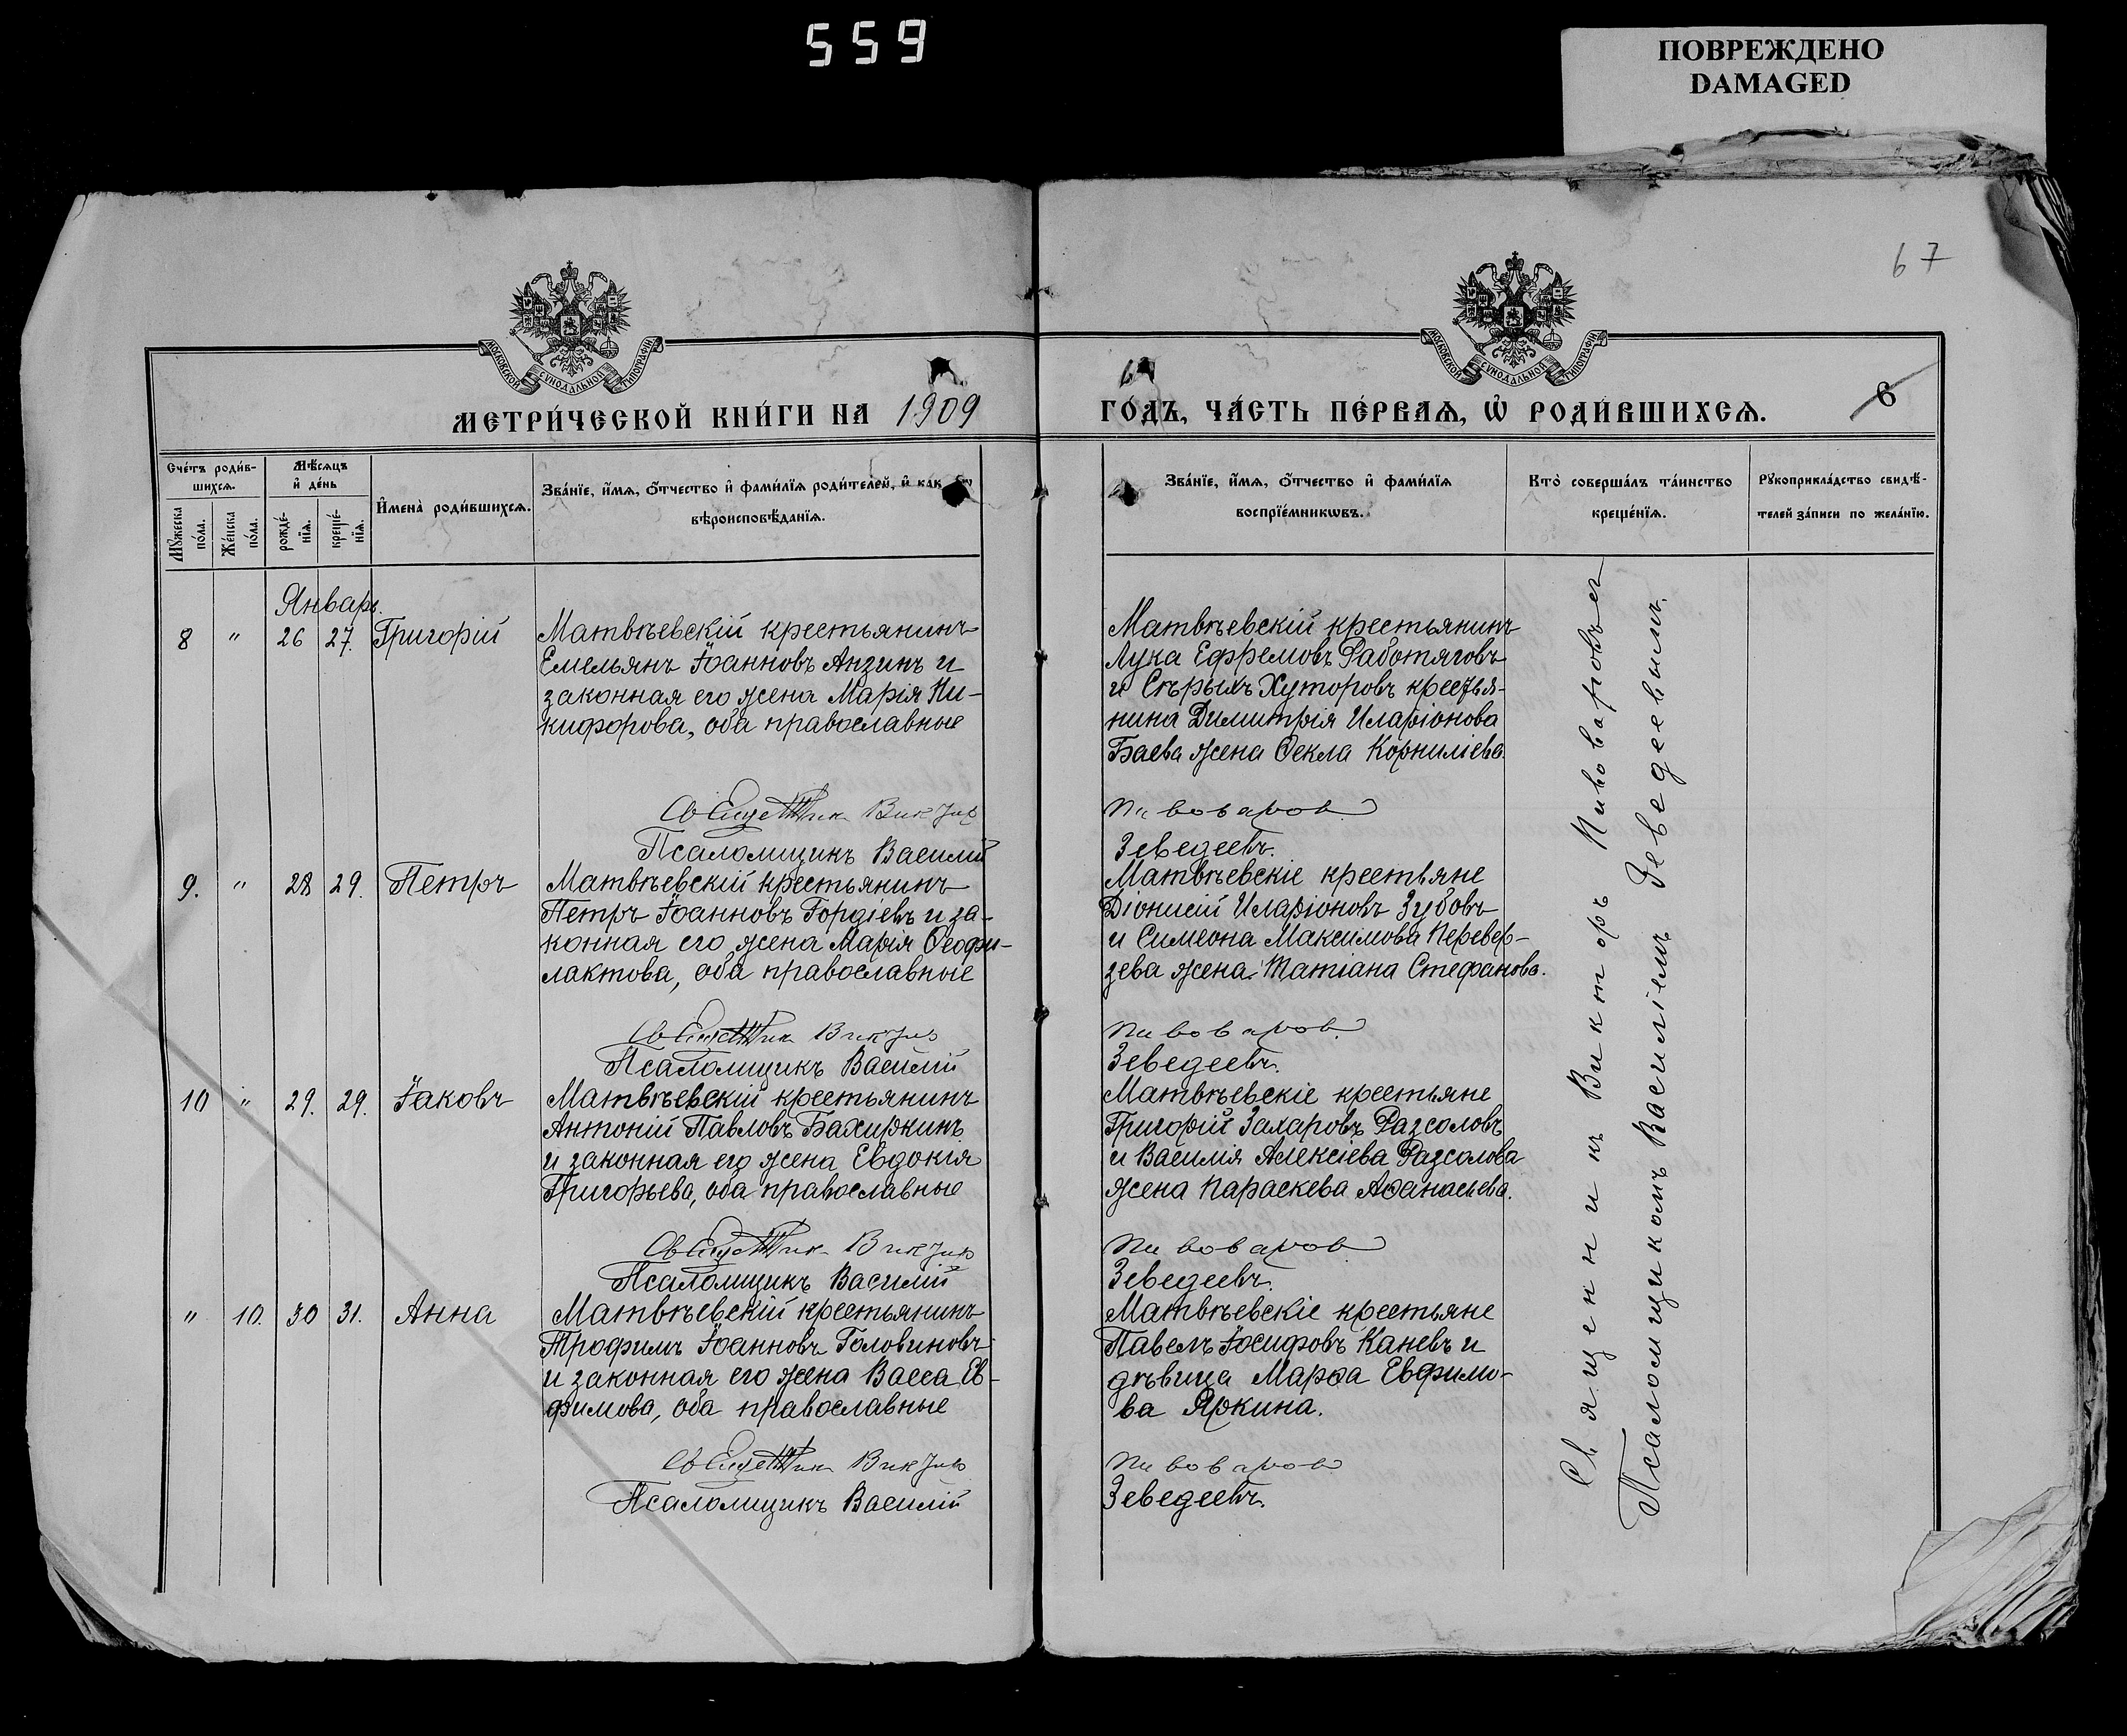 559
ПОВРЕЖДЕНО
DAMAGED
67
МОСКОВСКОЙ СѴНОДАЛЬНОЙ ТИПОГРАФІИ
МОСКОВСКОЙ СѴНОДАЛЬНОЙ ТИПОГРАФІИ
МЕТРИ́ЧЕСКОЙ КНИ́ГИ НА 1909
ГО́ДЪ, ЧА́СТЬ ПЕ́РВАѦ, Ѡ҆ РОДИ́ВШИХСѦ.
6
Сче́тъ роди́в-
шихсѧ.
Мꙋ́жеска по́ла.
Же́нска по́ла.
Мѣ́сѧцъ
и҆ де́нь
рожде́-
нїѧ.
креще́-
нїѧ.
И҆мена̀ роди́вшихсѧ.
Зва́нїе, и҆́мѧ, ѻ҆́тчество и҆ фами́лїѧ роди́телей, и҆ как
вѣроисповѣ́данїѧ.
Зва́нїе, и҆́мѧ, ѻ҆́тчество и҆ фами́лїѧ
воспрїе́мникѡвъ.
Кто̀ соверша́лъ та́инство
креще́нїѧ.
Рꙋкоприкла́дство свидѣ́-
телей за́писи по жела́нїю.
Январь.
8 " 26 27. Григорій
Матвѣевскій крестьянинъ
Емельянъ Іоанновъ Анзинъ и
законная его жена Марія Ни-
кифорова, оба православные
Священник Виктор
Псаломщикъ Василій
Матвѣевскій крестьянинъ
Лука Ефремовъ Работяговъ
и Сѣрыхъ Хуторовъ крестья-
нина Димитрія Иларіонова
Баева жена Ѳекла Корниліева.
Пивоваров
Зеведеевъ.
9. " 28 29. Петръ
Матвѣевскій крестьянинъ
Петръ Іоанновъ Гордіевъ и за-
конная его жена Марія Ѳеофи-
лактова, оба православные
Священник Виктор
Псаломщикъ Василій
Матвѣевскіе крестьяне
Діонисій Иларіоновъ Зубовъ
и Симеона Максимова Перевер-
зева жена Татіана Стефанова.
Пивоваров
Зеведеевъ.
10 " 29. 29. Іаковъ
Матвѣевскій крестьянинъ
Антоній Павловъ Бахиркинъ
и законная его жена Евдокія
Григорьева, оба православные
Священник Виктор
Псаломщикъ Василій
Матвѣевскіе крестьяне
Григорій Захаровъ Разсоловъ
и Василія Алексіева Разсолова
жена Параскева Аѳанасьева.
Пивоваров
Зеведеевъ.
" 10. 30 31. Анна
Матвѣевскій крестьянинъ
Трофимъ Іоанновъ Головиновъ
и законная его жена Васса Ев-
фимова, оба православные
Священник Виктор
Псаломщикъ Василій
Матвѣевскіе крестьяне
Павелъ Іосифовъ Каневъ и
дѣвица Марѳа Евфимо-
ва Яркина.
Пивоваров
Зеведеевъ.
Священникъ Викторъ Пивоваровъ съ
Псаломщикомъ Василіемъ Зеведеевымъ.